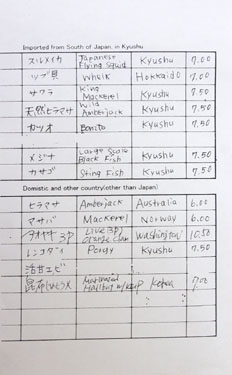 Imported from South of Japan, in Kyushu
スルメイカ Japanese Flying Squid Kyushu 7.00
ツブ貝 Whelk Hokkaido 7.00
サワラ King Mackerel Kyushu 7.50
天然ヒラマサ Wild Amberjack Kyushu 7.50
カツオ Bonito Kyushu 7.50
メジナ Large Scale Black Fish Kyushu 7.50
カサゴ Sting Fish Kyushu 7.50
Domistic and other country(other than Japan)
ヒラマサ Amberjack Australia 6.00
マサバ Mackerel Norway 6.00
アオヤギ 3p Live (3p) Orange clam Washington 10.50
レンコダイ Porgy Kyushu 7.50
活甘エビ
昆布〆ヒラメ Marinated Halibut w/kelp Korea 7.00